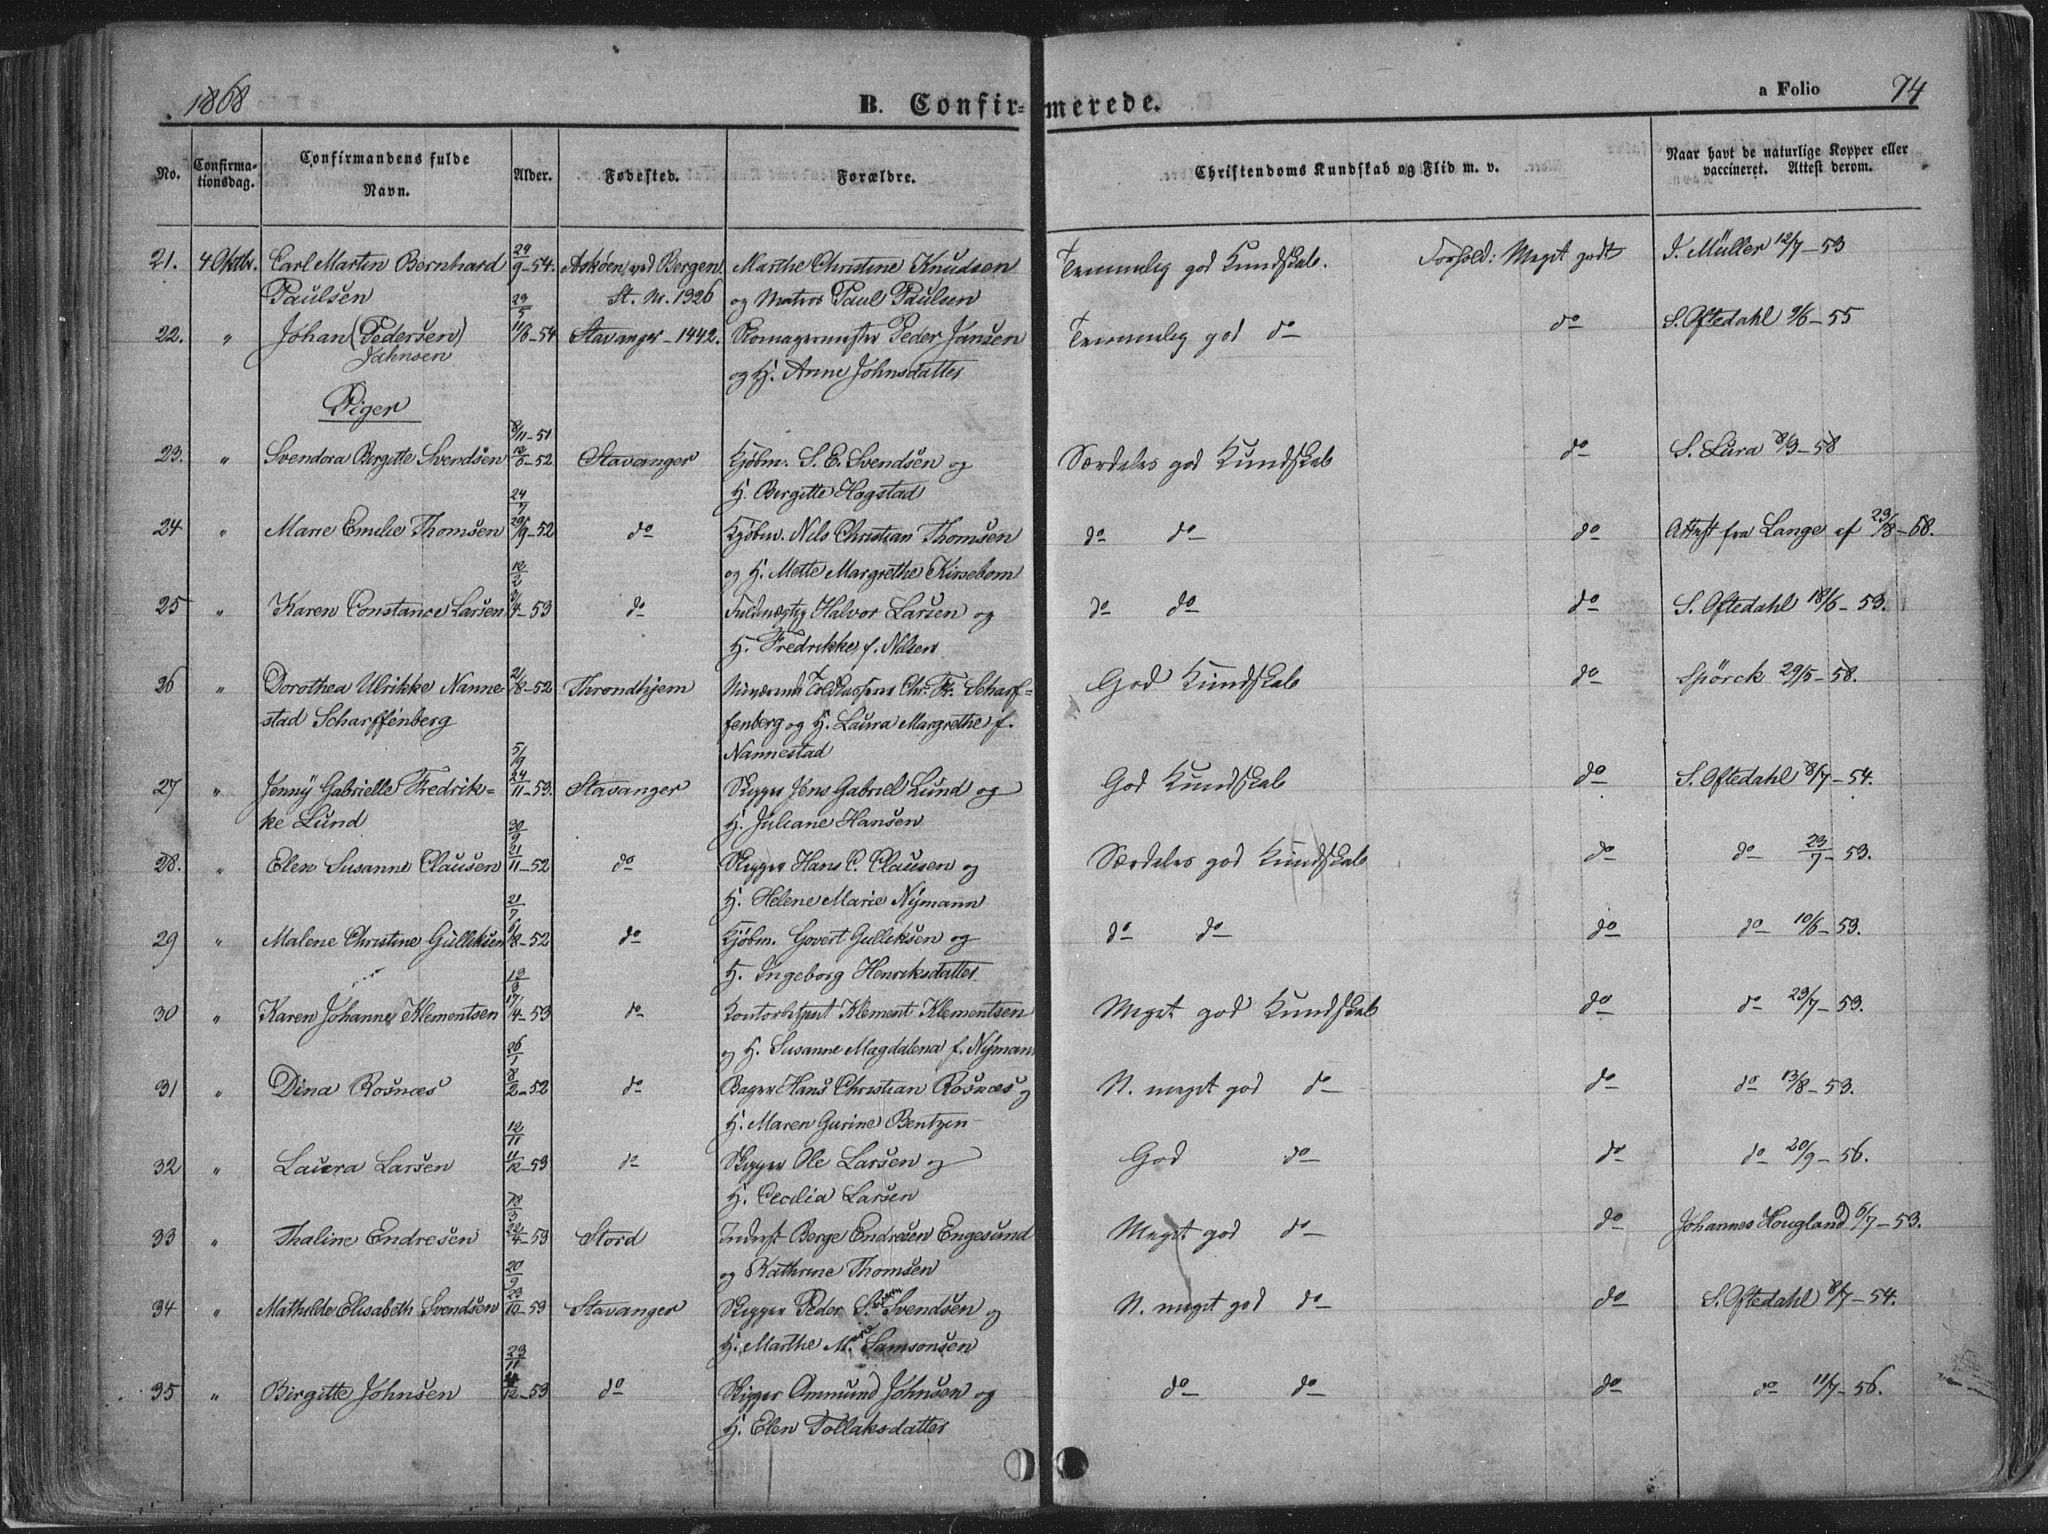 1868
B. Confirmerede.
a Folio 74
No.
Confirmationsdag.
Confirmandens fulde Navn.
Alder.
Fødested.
Forældre.
Christendoms Kundskab og Flid m. v.
Naar havt de naturlige Kopper eller vaccineret. Attest derom.
21. 4 Oktbr. Carl Martin Bernhard 29/9-54. Askøen ved Bergen Marthe Christine Knudsen Temmelig god Kundskab. Forhold: Meget godt J. Müller 12/7-53
Paulsen St. Nr. 1326 og Matros Paul Paulsen
22. " Johan (Pedersen) 29/5 11/8-54 Stavanger-1442. Skomagermester Peder Jansen Temmelig god do do S. Oftedahl 9/6-55
Jahnsen og H. Anne Johnsdatter
Piger
23. " Svendora Birgitte Svendsen 8/11-51 12/6-52 Stavanger Kjøbm. S. E. Svendsen og Særdeles god Kundskab do S. Lura 8/3-58
H. Bergitte Hagstad
24 " Marie Emelie Thomsen 24/7 29/9-52 do Kjøbm. Nils Christian Thomsen do do do Attest fra Lange af 29/8-68.
og H. Mette Margrethe Kirsebom
25 " Karen Constance Larsen 12/2 3/4-53 do Fuldmægtig Halvor Larsen og do do do S. Oftedahl 18/6-53.
H. Fredrikke f. Nilsen
26 " Dorothea Ulrikke Nanne- 2/8-52 Throndhjem Toldkasserer Chr. Fr. Scharf- God Kundskab do Spörck 29/5-58.
stad Scharffenberg fenberg og H. Laura Margrethe f.
Nannestad
27 " Jenny Gabrielle Fredrik- 5/9 24/11-53. Stavanger Skipper Jens Gabriel Lund og God Kundskab do S. Oftedahl 8/7-54.
ke Lund H. Juliane Hansen
28. " Elen Susanne Clausen 30/9 21/11-52 do Skipper Hans C. Clausen og Særdeles god Kundskab do do 23/7-53.
H. Helene Marie Nymann
29 " Malene Christine Gulliksen 21/7 6/8-52 do Kjøbm. Govert Gulliksen og do do do do 10/6-53.
H. Ingeborg Henriksdatter
30 " Karen Johanne Klementsen 13/3 17/4-53 do Kontorbetjent Klement Klementsen Meget god Kundskab do do 23/7-53.
og H. Susanne Magdalena f. Nymann
31 " Dina Rosnæs 26/1 8/2-52 do Bager Hans Christian Rosnæs og N. meget god do do do 13/8-53.
H. Maren Gurine Bentzen
32 " Laura Larsen 12/11 11/12-53 do Skipper Ole Larsen og God do do do 20/9-56.
H. Cecilia Larsen
33 " Thaline Endresen 18/3 22/4-53 Stord Inderst Berge Endresen Engesund Meget god do do Johannes Hougland 6/7-53.
og Kathrine Thomsen
34 " Mathilde Elisabeth Svendsen 20/9 23/10-53 Stavanger Skipper Peder S. Svendsen og N. meget god do do S. Oftedahl 8/7-54.
H. Marthe M. Samsonsen
35 " Birgitte Johnsen 23/11 4/12-53 do Skipper Ommund Johnsen og do do do do 11/7-56.
H. Elen Tollaksdatter